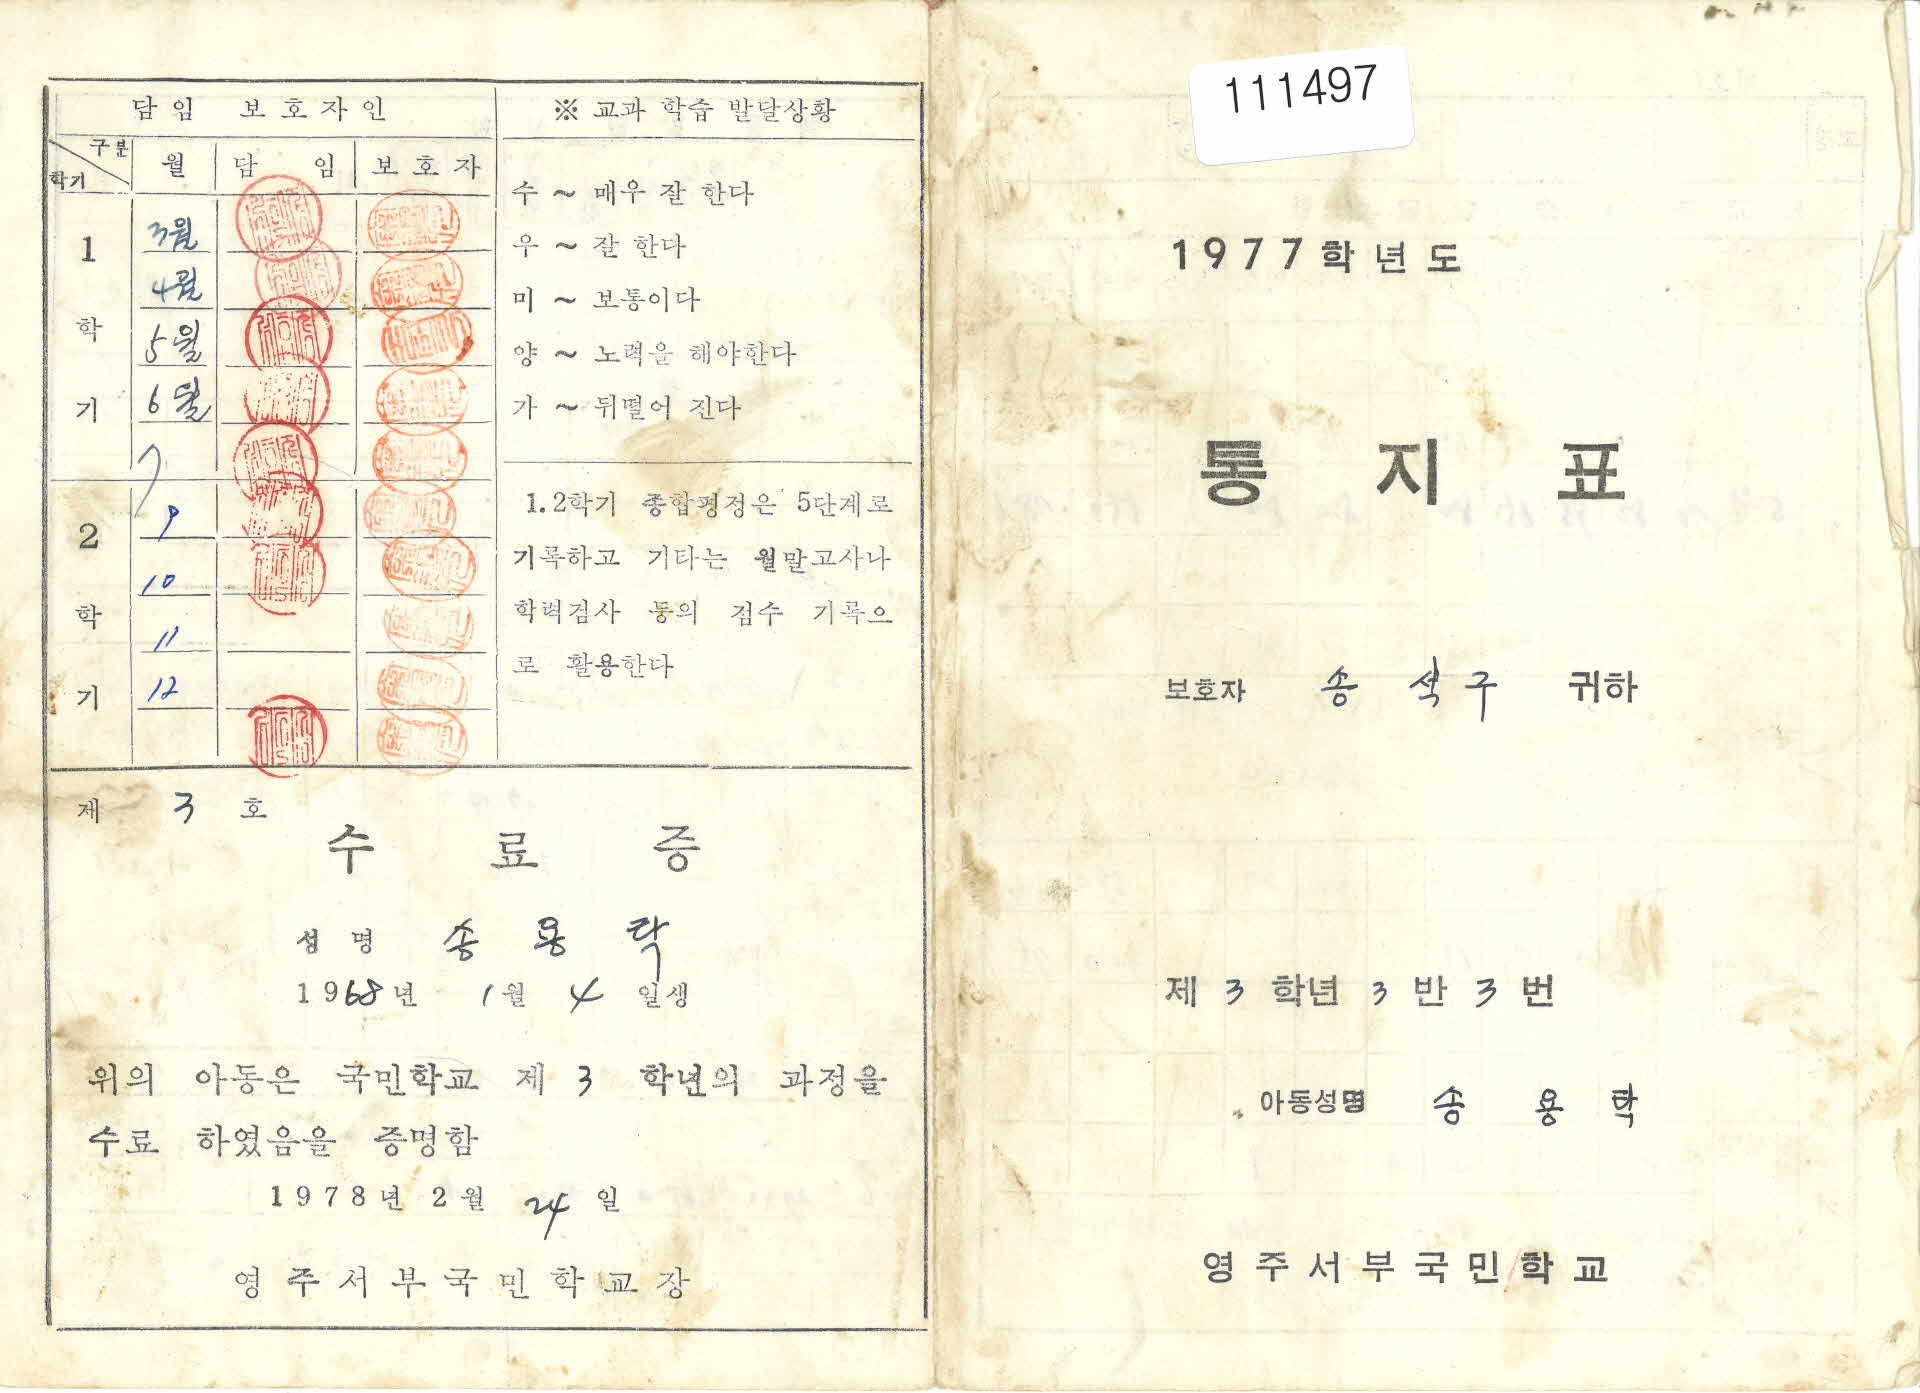 담임 보호자인
구분
학기
월 담 임 보호자
1 학 기
3월
4월
5월
6월
7
2 학 기
9
10
11
12
※ 교과 학습 발달상황
수 ~ 매우 잘 한다
우 ~ 잘 한다
미 ~ 보통이다
양 ~ 노력을 해야한다
가 ~ 뒤떨어 진다
1.2학기 종합평정은 5단계로
기록하고 기타는 월말고사나
학력검사 등의 점수 기록으
로 활용한다
제 3 호
수 료 증
성 명 송 용 탁
1968년 1월 4 일생
위의 아동은 국민학교 제 3 학년의 과정을
수료 하였음을 증명함
1978년 2월 24 일
영주서부국민학교장
111497
1977학년도
통 지 표
보호자 송 석 구 귀하
제 3 학년 3 반 3 번
아동성명 송 용 탁
영주서부국민학교